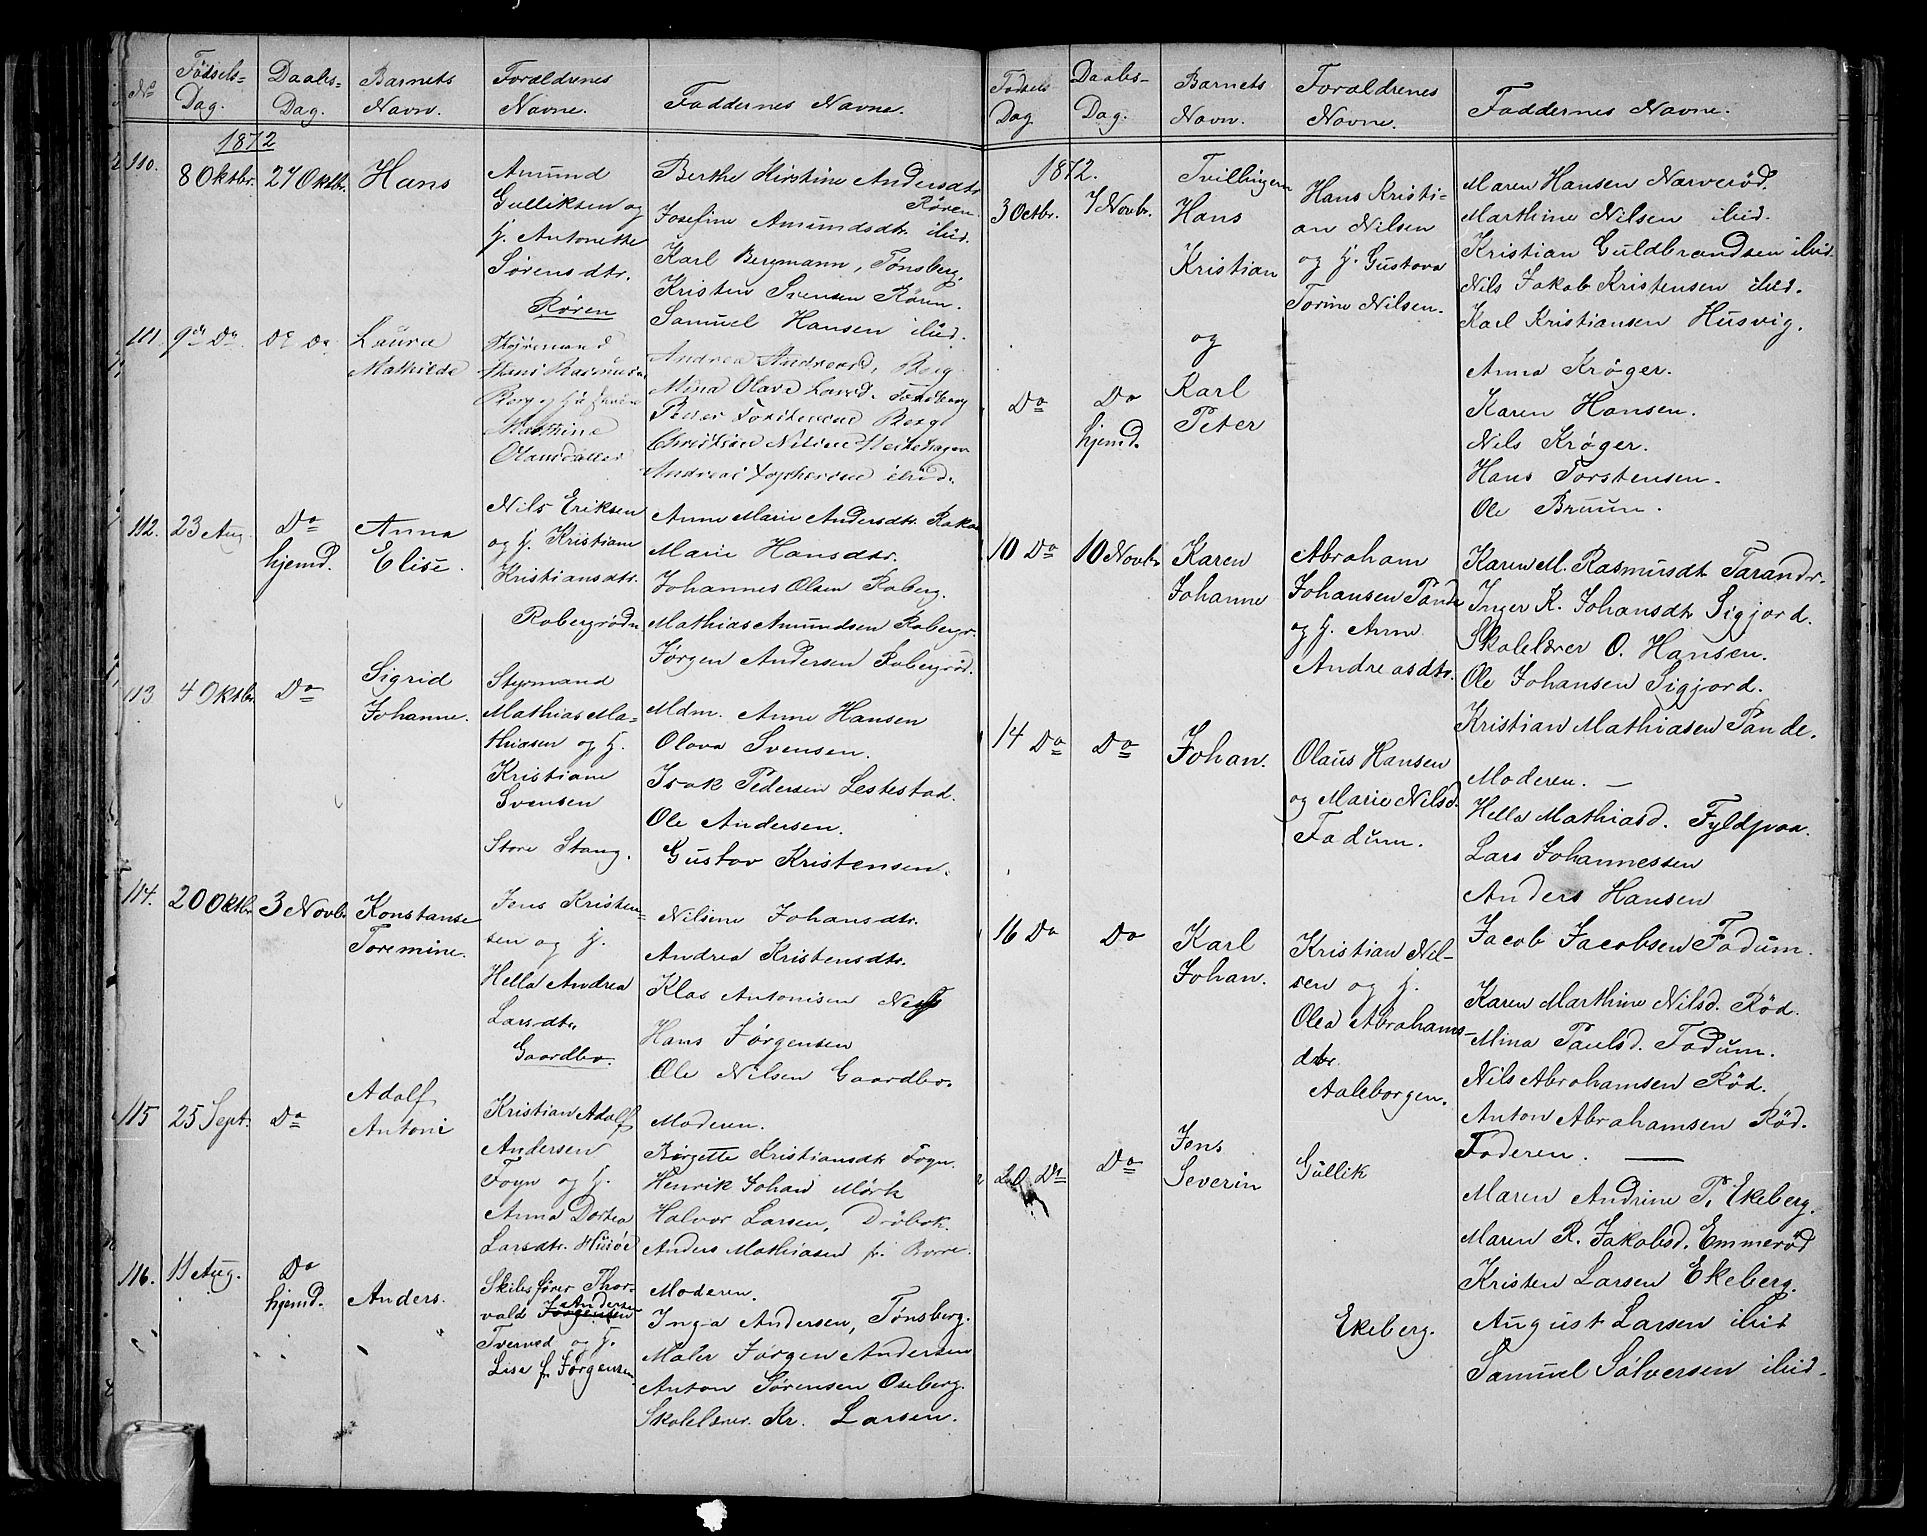 No
Födsels-
Dag.
Daabs-
Dag.
Barnets
Navn.
Forældrenes
Navne.
Faddernes Navne.
1872
110.
8 Oktbr.
27 Oktb.
Hans
Amund
Gulliksen og
H. Antonette
Sørensdtr.
Røren
Berthe Kirstine Andersdtr
Røren.
Josefine Amundsdtr. ibid.
Karl Bergmann, Tønsberg.
Kristen Svensen Røren.
Samuel Hansen ibid.
111.
9de Do.
Do Do.
Laura
Mathilde
Styremand
Hans Rasmusen
Berg og H.
Mathine
Olausdatter
Andrea Andreasd. Berg
Mina Olava Larsd. Tønsberg
Berg
Christian Nilsen
Andreas ibid.
112.
23 Aug.
Do
hjemd.
Anna
Elise.
Nils Eriksen
og H. Kristiane
Kristiansdtr.
Robergrødn
Anne Marie Andersdtr.
Marie Hansdtr.
Johannes Olsen Roberg.
Mathias Amundsen Robergr.
Jørgen Andersen Robergrød.
113
4 Oktbr.
Do
Sigrid
Johanne.
Styrmand
Mathias Ma-
thiasen og H.
Kristiane
Svensen
Store Stang.
Mdm. Anne Hansen
Olava Svensen.
Isak Pedersen Lestestad.
Ole Andersen.
Gustav Kristensen.
114.
20 Oktbr.
3 Novb.
Konstanse
Toremine.
Jens Kristen-
sen og H.
Hella Andrea
Larsdtr.
Gaardbo.
Nilsine Johansdtr.
Andrea Kristensdtr.
Klas Antonisen Nes
Hans Jørgensen
Ole Nilsen Gaardbo.
115
25 Sept.
Do
Adolf
Antoni
Kristian Adolf
Andersen
Foyn og H.
Anna Dortea
Larsdtr. Husøe
Moderen.
Birgette Kristiansdtr Fogn.
Henrik Johan Mørk
Halvor Larsen, Drøbak.
Anders Mathiasen fr. Borre.
116.
11 Aug.
Do
hjemd.
Anders.
Skibsfører Thor-
vald Jørgensen Andersen
Tverved og H.
Lise f. Jørgensen
Moderen.
Inga Andersen, Tønsberg.
Maler Jørgen Andersen
Anton Sørensen Oseberg.
Skolelærer. Kr. Larsen.
Födsels
Dag
Daabs-
Dag.
Barnets
Navn.
Forældrenes
Navne.
Faddernes Navne.
1872.
3 Octbr.
7 Novbr.
Tvillingern
Hans
Kristian
Hans Kristi-
an Nilsen
og H. Gustava
Torine Nilsen.
Maren Hansen Narverød.
Marthine Nilsen ibid.
Kristian Guldbrandsen ibid.
Nils Jakob Kristensen ibid.
Karl Kristiansen Husvig.
og
Do
Do
hjemd.
Karl
Peter
Anna Krøger.
Karen Hansen.
Nils Krøger.
Hans Torstensen.
Ole Bruun.
10 Do
10 Novbr
Karen
Johanne
Abraham
Johansen Pande
og H. Anne
Andreasdtr.
Karen M. Rasmusdt Tarandr.
Inger K. Johansdtr Sigjord.
Skolelærer O. Hansen.
Ole Johansen Sigjord.
Kristian Mathiasen Pande.
14 Do
Do
Johan.
Olaus Hansen
og Marie Nilsd.
Fadum.
Moderen. —
Hella Mathiasd. Fyldpaa.
Lars Johannessen
Anders Hansen
Jacob Jacobsen Fadum.
16 Do
Do
Karl
Johan.
Kristian Nil-
sen og H.
Olea Abrahams-
dtr.
Aaleborgen.
Karen Marthine Nilsd. Rød.
Mina Paulsd. Fadum.
Nils Abrahamsen Rød.
Anton Abrahamsen Rød.
Faderen. —
20 Do
Do
Jens
Severin
Gullik
Ekeberg.
Maren Andrine P. Ekeberg.
Maren R. Jakobsd. Emmerød
Kristen Larsen Ekeberg.
August Larsen ibid
Samuel Sølversen ibid.